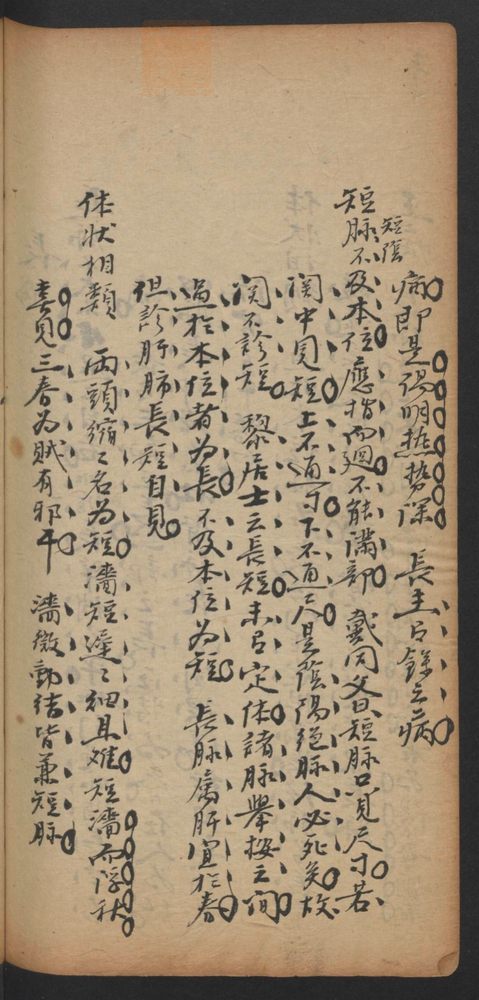 病即是陽明热势深 長主有餘之病
短陰
短脉不及本位應指而廻不能滿部 戴同父曰短脉只見尺寸若
関中見短上不通寸下不通尺是陰陽絕脉人必死矣故
関不診短 黎居士云長短未有定体諸脉舉按之間
過於本位者為長不及本位為短 長脉属肝宜於春
但診肝肺長短自見
体状相類 两頭縮〻名為短濇短遲〻細且难短濇而浮秋
喜見三春为贼有邪干 濇微動结皆兼短脉